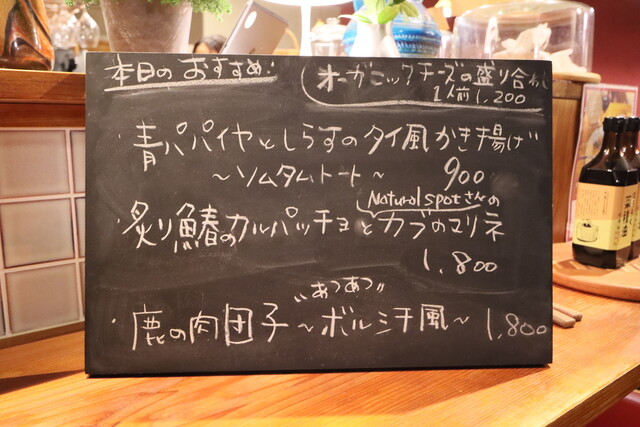 本日のおすすめ:
オーガニックチーズの盛り合わせ
1人前 1,200
・青パパイヤとしらすのタイ風かき揚げ
～ソムタムトート～ 900
Natural spotさんの
・炙り鰆のカルパッチョとカブのマリネ
1,800
"あつあつ"
・鹿の肉団子～ボルシチ風～ 1,800